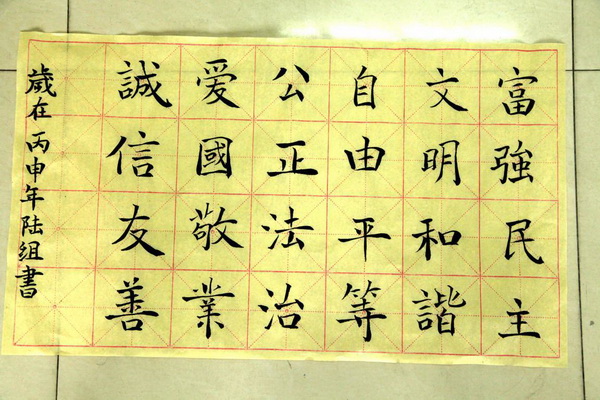 富強民主
文明和諧
自由平等
公正法治
爱國敬業
誠信友善
歲在丙申年陆组書